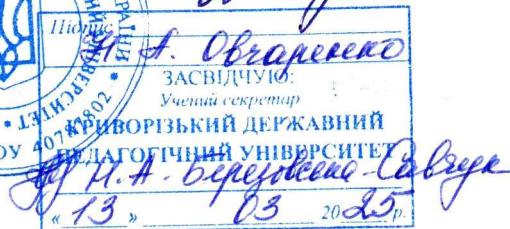 Підпис
Н. А. Овчаренко
ЗАСВІДЧУЮ:
Учений секретар
КРИВОРІЗЬКИЙ ДЕРЖАВНИЙ
ПЕДАГОГІЧНИЙ УНІВЕРСИТЕТ
Н.А. Березовська-Савчук
« 13 » 03 2025р.